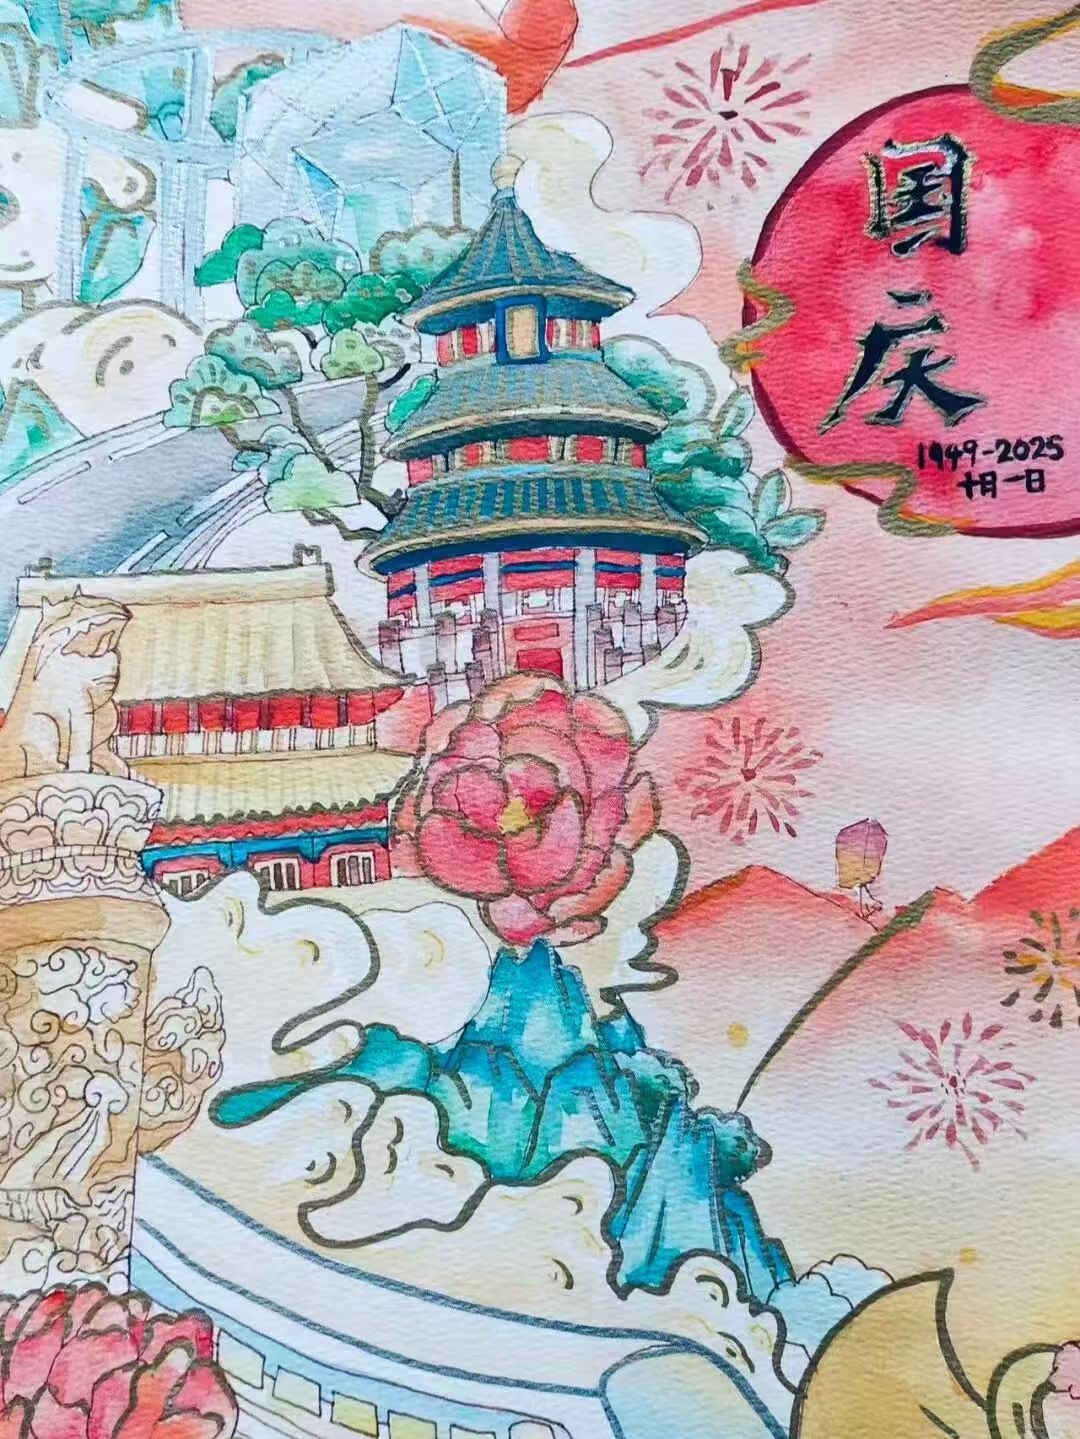 国
庆
1949-2025
十月一日